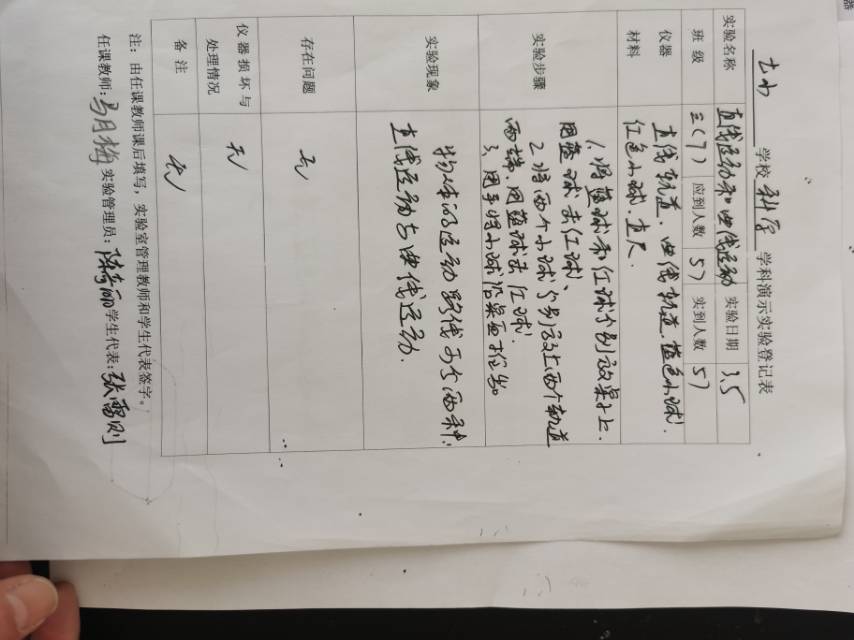 学校 科学 学科演示实验登记表
实验名称 直线运动和曲线运动 实验日期 3.5
班级 三(7) 应到人数 57 实到人数 57
仪器材料 直线轨道.曲线轨道.蓝色小球.
红色小球.直尺.
实验步骤 1.将蓝球和红球分别放桌子上.
用蓝球击红球、
2.将两个小球分别放上两个轨道
两端.用蓝球击红球.
3.用手将小球沿桌面
实验现象 物体的运动路线可分两种.
直线运动与曲线运动.
存在问题 无
仪器损坏与处理情况 无
备注 无
注：由任课教师课后填写，实验室管理教师和学生代表签字。
任课教师：马月梅 实验管理员：陈 丽 学生代表：张雷则